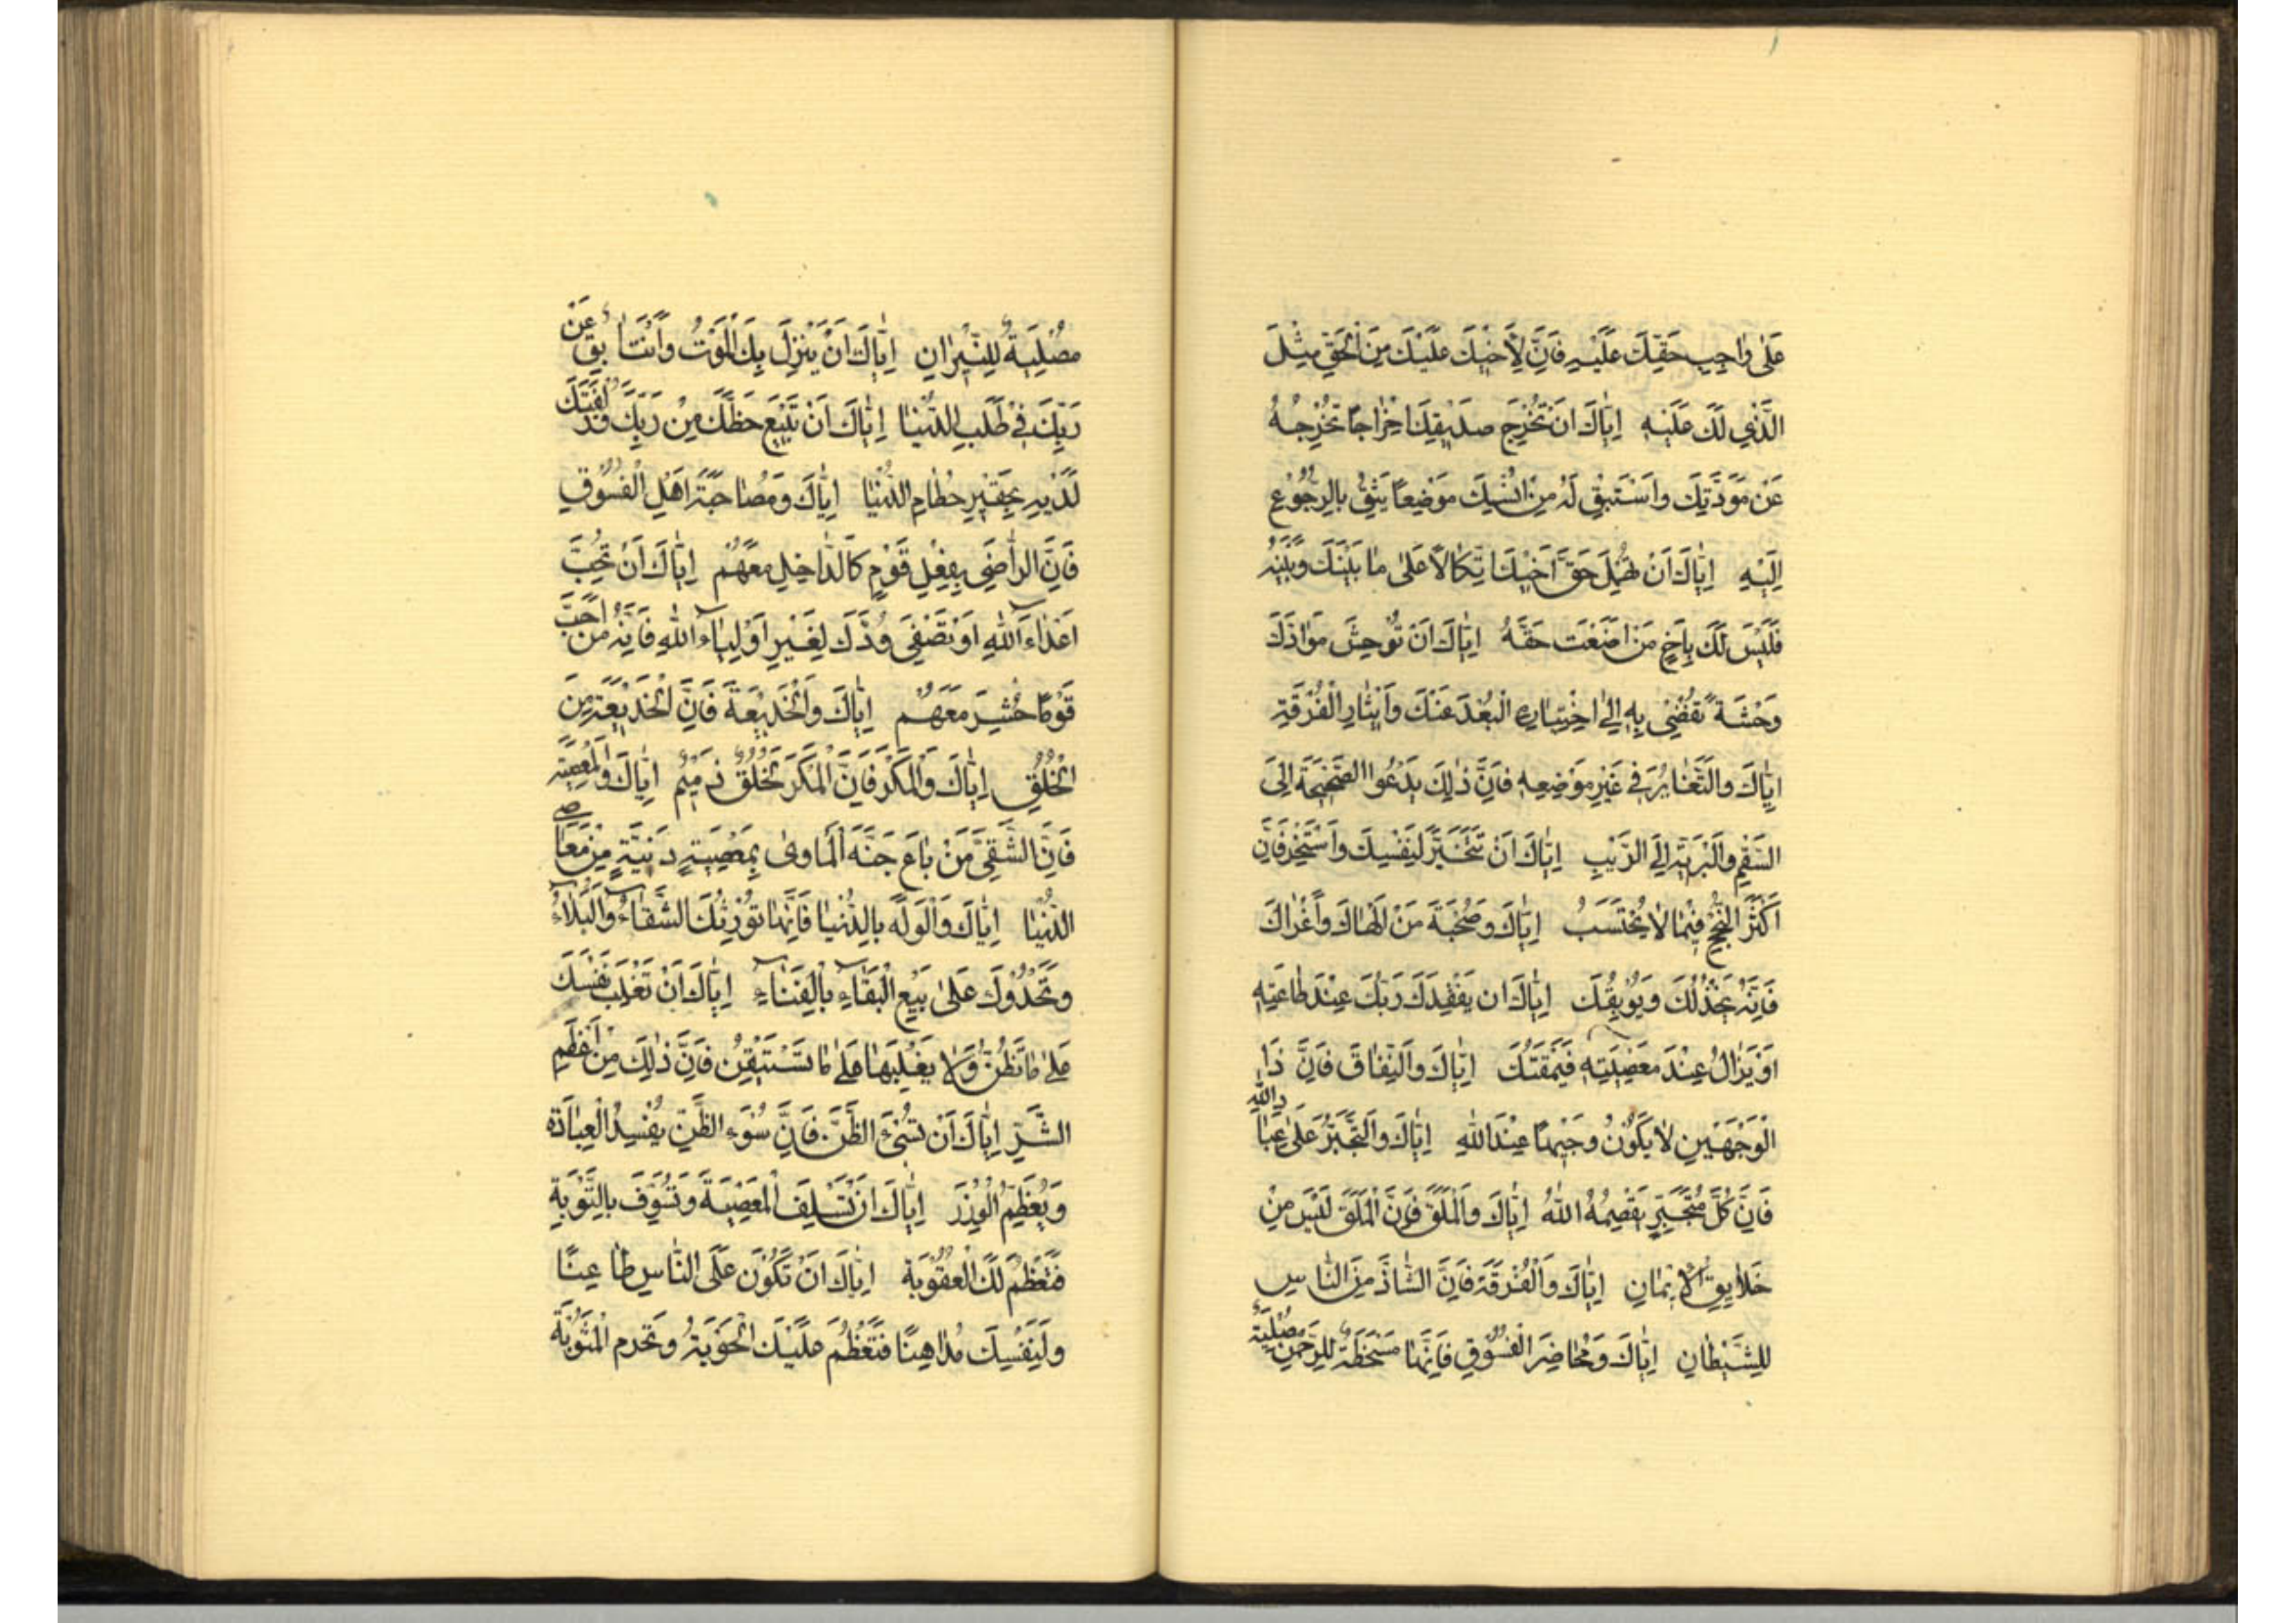 عَلىٰ وٰاجِبِ حَقِّكَ عَلَيْهِ فَاِنَّ لِاَخيٖكَ عَلَيْكَ مِنَ الْحَقِّ مِثْلَ
الَّذيٖ لَكَ عَلَيْهِ اِيّٰاكَ اَنْ تُخْرِجَ صَديٖقَكَ اِخْرٰاجًا تُخْرِجُهُ
عَنْ مَوَدَّتِكَ وَاسْتَبِقْ لَهُ مِنْ اُنْسِكَ مَوْضِعًا يَثِقُ بِالرُّجُوْعِ
اِلَيْهِ اِيّٰاكَ اَنْ تُهْمِلَ حَقَّ اَخيٖكَ اتِّكٰالًا عَلىٰ مٰا بَيْنَكَ وَبَيْنَهُ
فَلَيْسَ لَكَ بِاَخٍ مَنْ اَضَعْتَ حَقَّهُ اِيّٰاكَ اَنْ تُوْحِشَ مَوٰادَّكَ
وَحْشَةً تُفْضيٖ بِهِ اِلىٰ اخْتِيٰارِهِ الْبُعْدَ عَنْكَ وَاٖيثٰارِ الْفُرْقَةِ
اِيّٰاكَ وَالتَّغٰايُرَ فيٖ غَيْرِ مَوْضِعِهٖ فَاِنَّ ذٰلِكَ يَدْعُوا الصَّحيٖحَةَ اِلَى
السَّقَمِ وَالْبَريٖئَةَ اِلَى الرَّيْبِ اِيّٰاكَ اَنْ تَتَخَيَّرَ لِنَفْسِكَ وَاسْتَخِرْ فَاِنَّ
اَكْثَرَ النُّجْحِ فيٖمٰا لٰا يُحْتَسَبُ اِيّٰاكَ وَصُحْبَةَ مَنْ اَلْهٰاكَ وَاَغْرٰاكَ
فَاِنَّهُ يَخْذُلُكَ وَيُوْبِقُكَ اِيّٰاكَ اَنْ يَفْقِدَكَ رَبُّكَ عِنْدَ طٰاعَتِهٖ
اَوْ يَرٰاكَ عِنْدَ مَعْصِيَتِهٖ فَيَمْقُتَكَ اِيّٰاكَ وَالنِّفٰاقَ فَاِنَّ ذَا
الْوَجْهَيْنِ لٰا يَكُوْنُ وَجيٖهًا عِنْدَ اللّٰهِ اِيّٰاكَ وَالتَّجَبُّرَ عَلىٰ عِبٰادِ اللّٰهِ
فَاِنَّ كُلَّ مُتَجَبِّرٍ يَقْصِمُهُ اللّٰهُ اِيّٰاكَ وَالْمَلَقَ فَاِنَّ الْمَلَقَ لَيْسَ مِنْ
خَلٰايِقِ الْاٖيمٰانِ اِيّٰاكَ وَالْفُرْقَةَ فَاِنَّ الشّٰاذَّ مِنَ النّٰاسِ
لِلشَّيْطٰانِ اِيّٰاكَ وَمَحٰاضِرَ الْفُسُوْقِ فَاِنَّهٰا مَسْخَطَةٌ لِلرَّحْمٰنِ مُصْلِيَةٌ
مُصْلِيَةٌ لِلنّيٖرٰانِ اِيّٰاكَ اَنْ يَنْزِلَ بِكَ الْمَوْتُ وَاَنْتَ اٰبِقٌ عَنْ
رَبِّكَ فيٖ طَلَبِ الدُّنْيٰا اِيّٰاكَ اَنْ تَبيٖعَ حَظَّكَ مِنْ رَبِّكَ وَزُلْفَتَكَ
لَدَيْهِ بِحَقيٖرِ حُطٰامِ الدُّنْيٰا اِيّٰاكَ وَمُصٰاحَبَةَ اَهْلِ الْفُسُوْقِ
فَاِنَّ الرّٰاضيٖ بِفِعْلِ قَوْمٍ كَالدّٰاخِلِ مَعَهُمْ اِيّٰاكَ اَنْ تُحِبَّ
اَعْدٰاءَ اللّٰهِ اَوْ تُصْفيٖ وُدَّكَ لِغَيْرِ اَوْلِيٰاءِ اللّٰهِ فَاِنَّهُ مَنْ اَحَبَّ
قَوْمًا حُشِرَ مَعَهُمْ اِيّٰاكَ وَالْخَديٖعَةَ فَاِنَّ الْخَديٖعَةَ مِنَ
الْخُلُقِ اِيّٰاكَ وَالْمَكْرَ فَاِنَّ الْمَكْرَ لَخُلُقٌ ذَميٖمٌ اِيّٰاكَ وَالْمَعْصِيَةَ
فَاِنَّ الشَّقِيَّ مَنْ بٰاعَ جَنَّةَ الْمَأْوىٰ بِمَعْصِيَةٍ دَنِيَّةٍ مِنْ مَعٰاصِي
الدُّنْيٰا اِيّٰاكَ وَالْوَلَهَ بِالدُّنْيٰا فَاِنَّهٰا تُوْرِثُكَ الشَّقٰاءَ وَالْبَلٰاءَ
وَتَحْدُوْكَ عَلىٰ بَيْعِ الْبَقٰاءِ بِالْفَنٰاءِ اِيّٰاكَ اَنْ تَغْلِبَ نَفْسَكَ
عَلىٰ مٰا تَظُنُّ وَلٰا يَغْلِبَهٰا عَلىٰ مٰا تَسْتَيْقِنُ فَاِنَّ ذٰلِكَ مِنْ اَعْظَمِ
الشَّرِّ اِيّٰاكَ اَنْ تُسيٖءَ الظَّنَّ فَاِنَّ سُوْءَ الظَّنِّ يُفْسِدُ الْعِبٰادَةَ
وَيُعَظِّمُ الْوِزْرَ اِيّٰاكَ اَنْ تُسْلِفَ الْمَعْصِيَةَ وَتُسَوِّفَ بِالتَّوْبَةِ
فَتَعْظُمَ لَكَ الْعُقُوْبَةُ اِيّٰاكَ اَنْ تَكُوْنَ عَلَى النّٰاسِ طٰاعِنًا
وَلِنَفْسِكَ مُدٰاهِنًا فَتَعْظُمَ عَلَيْكَ الْحَوْبَةُ وَتُحْرَمَ الْمَثُوْبَةَ